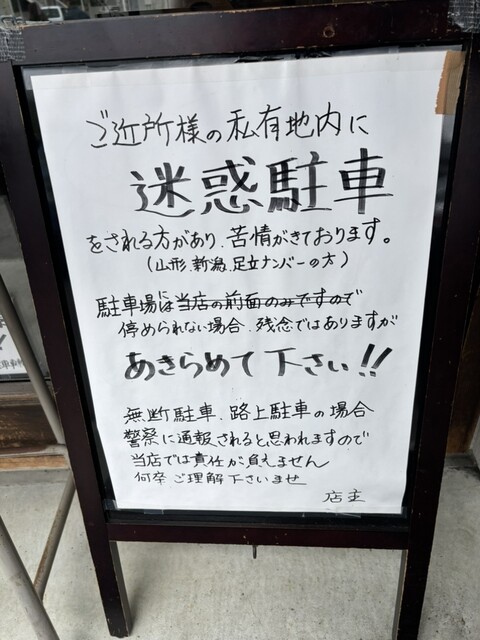 ご近所様の私有地内に
迷惑駐車
をされる方があり、苦情がきております。
(山形、新潟、足立ナンバーの方)
駐車場は当店の前面のみですので
停められない場合、残念ではありますが
あきらめて下さい!!
無断駐車、路上駐車の場合
警察に通報されると思われますので
当店では責任が負えません
何卒ご理解下さいませ
店主